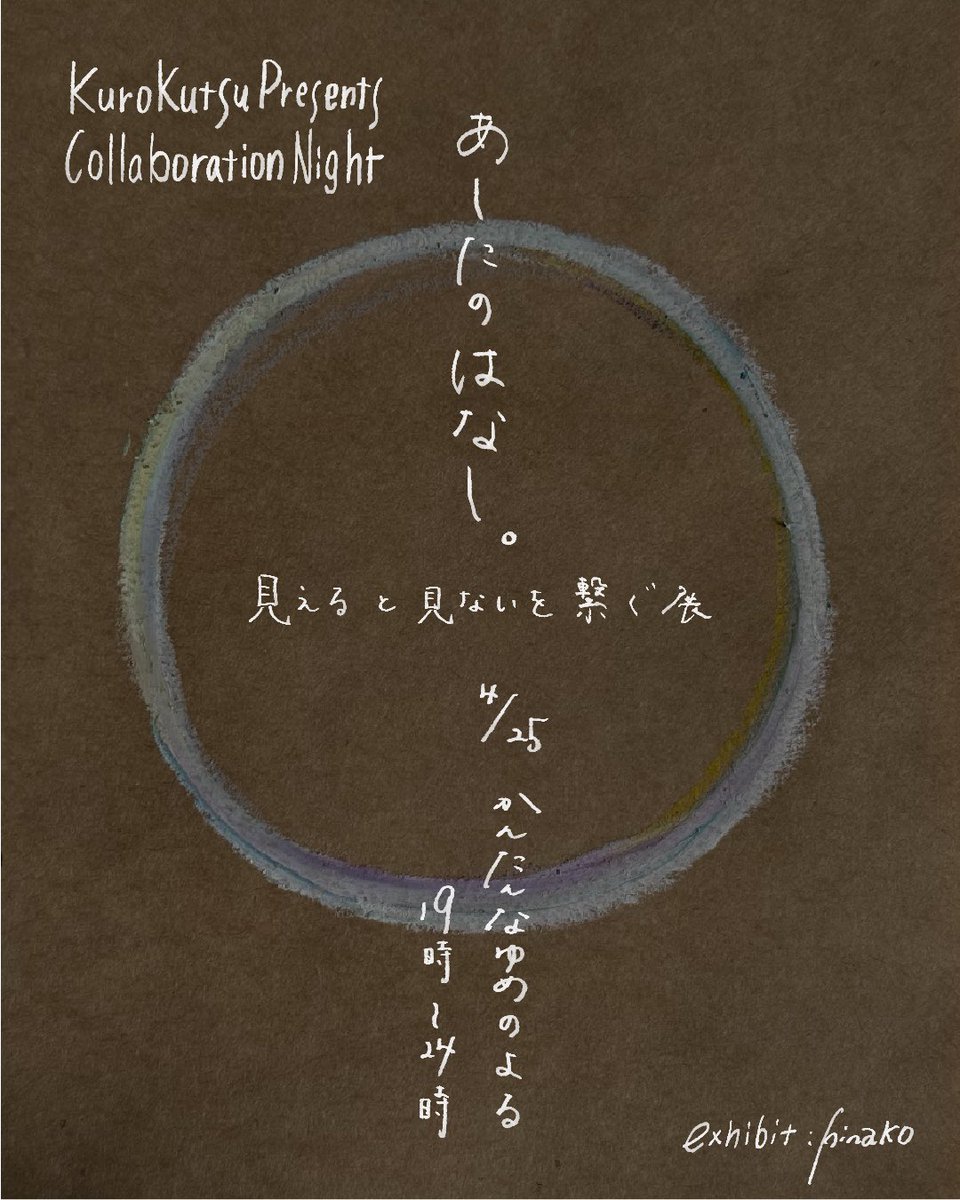 KuroKutsu Presents
Collaboration Night
あしたのはなし。
見えると見ないを繋ぐ展
4/25
かんたんなゆめのよる
19時〜24時
exhibit : hinako